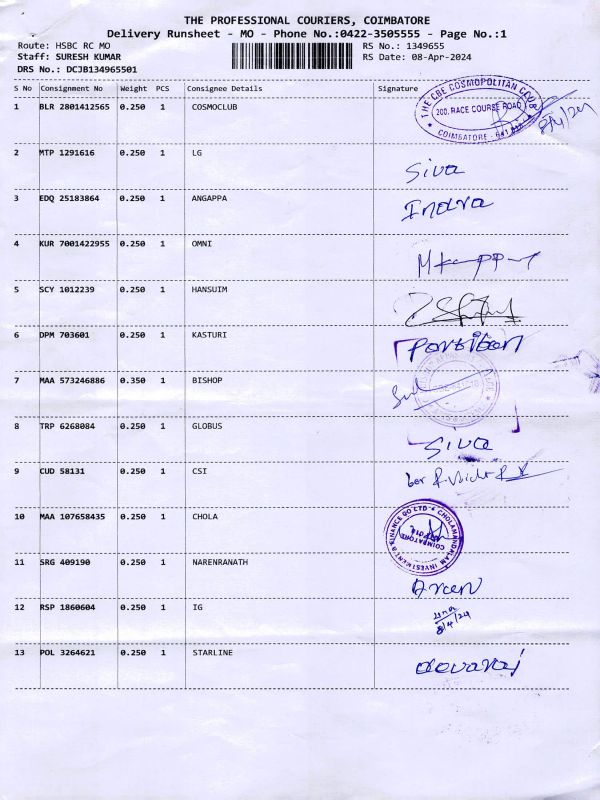 THE PROFESSIONAL COURIERS, COIMBATORE
Delivery Runsheet - MO - Phone No.:0422-3505555 - Page No.:1
Route: HSBC RC MO
RS No.: 1349655
Staff: SURESH KUMAR
RS Date: 08-Apr-2024
DRS No.: DCJB134965501
S No Consignment No Weight PCS Consignee Details Signature
1 BLR 2801412565 0.250 1 COSMOCLUB
THE CBE COSMOPOLITAN CLUB
200, RACE COURSE ROAD
COIMBATORE
8/4/24
2 MTP 1291616 0.250 1 LG Siva
3 EDQ 25183864 0.250 1 ANGAPPA Indra
4 KUR 7001422955 0.250 1 OMNI
5 SCY 1012239 0.250 1 HANSUIM
6 DPM 703601 0.250 1 KASTURI
7 MAA 573246886 0.350 1 BISHOP
8 TRP 6268084 0.250 1 GLOBUS Siva
9 CUD 58131 0.250 1 CSI
10 MAA 107658435 0.250 1 CHOLA
CHOLAMANDALAM INVESTMENT & FINANCE CO LTD
COIMBATORE
11 SRG 409190 0.250 1 NARENRANATH
12 RSP 1860604 0.250 1 IG
8/4/24
13 POL 3264621 0.250 1 STARLINE devaraj